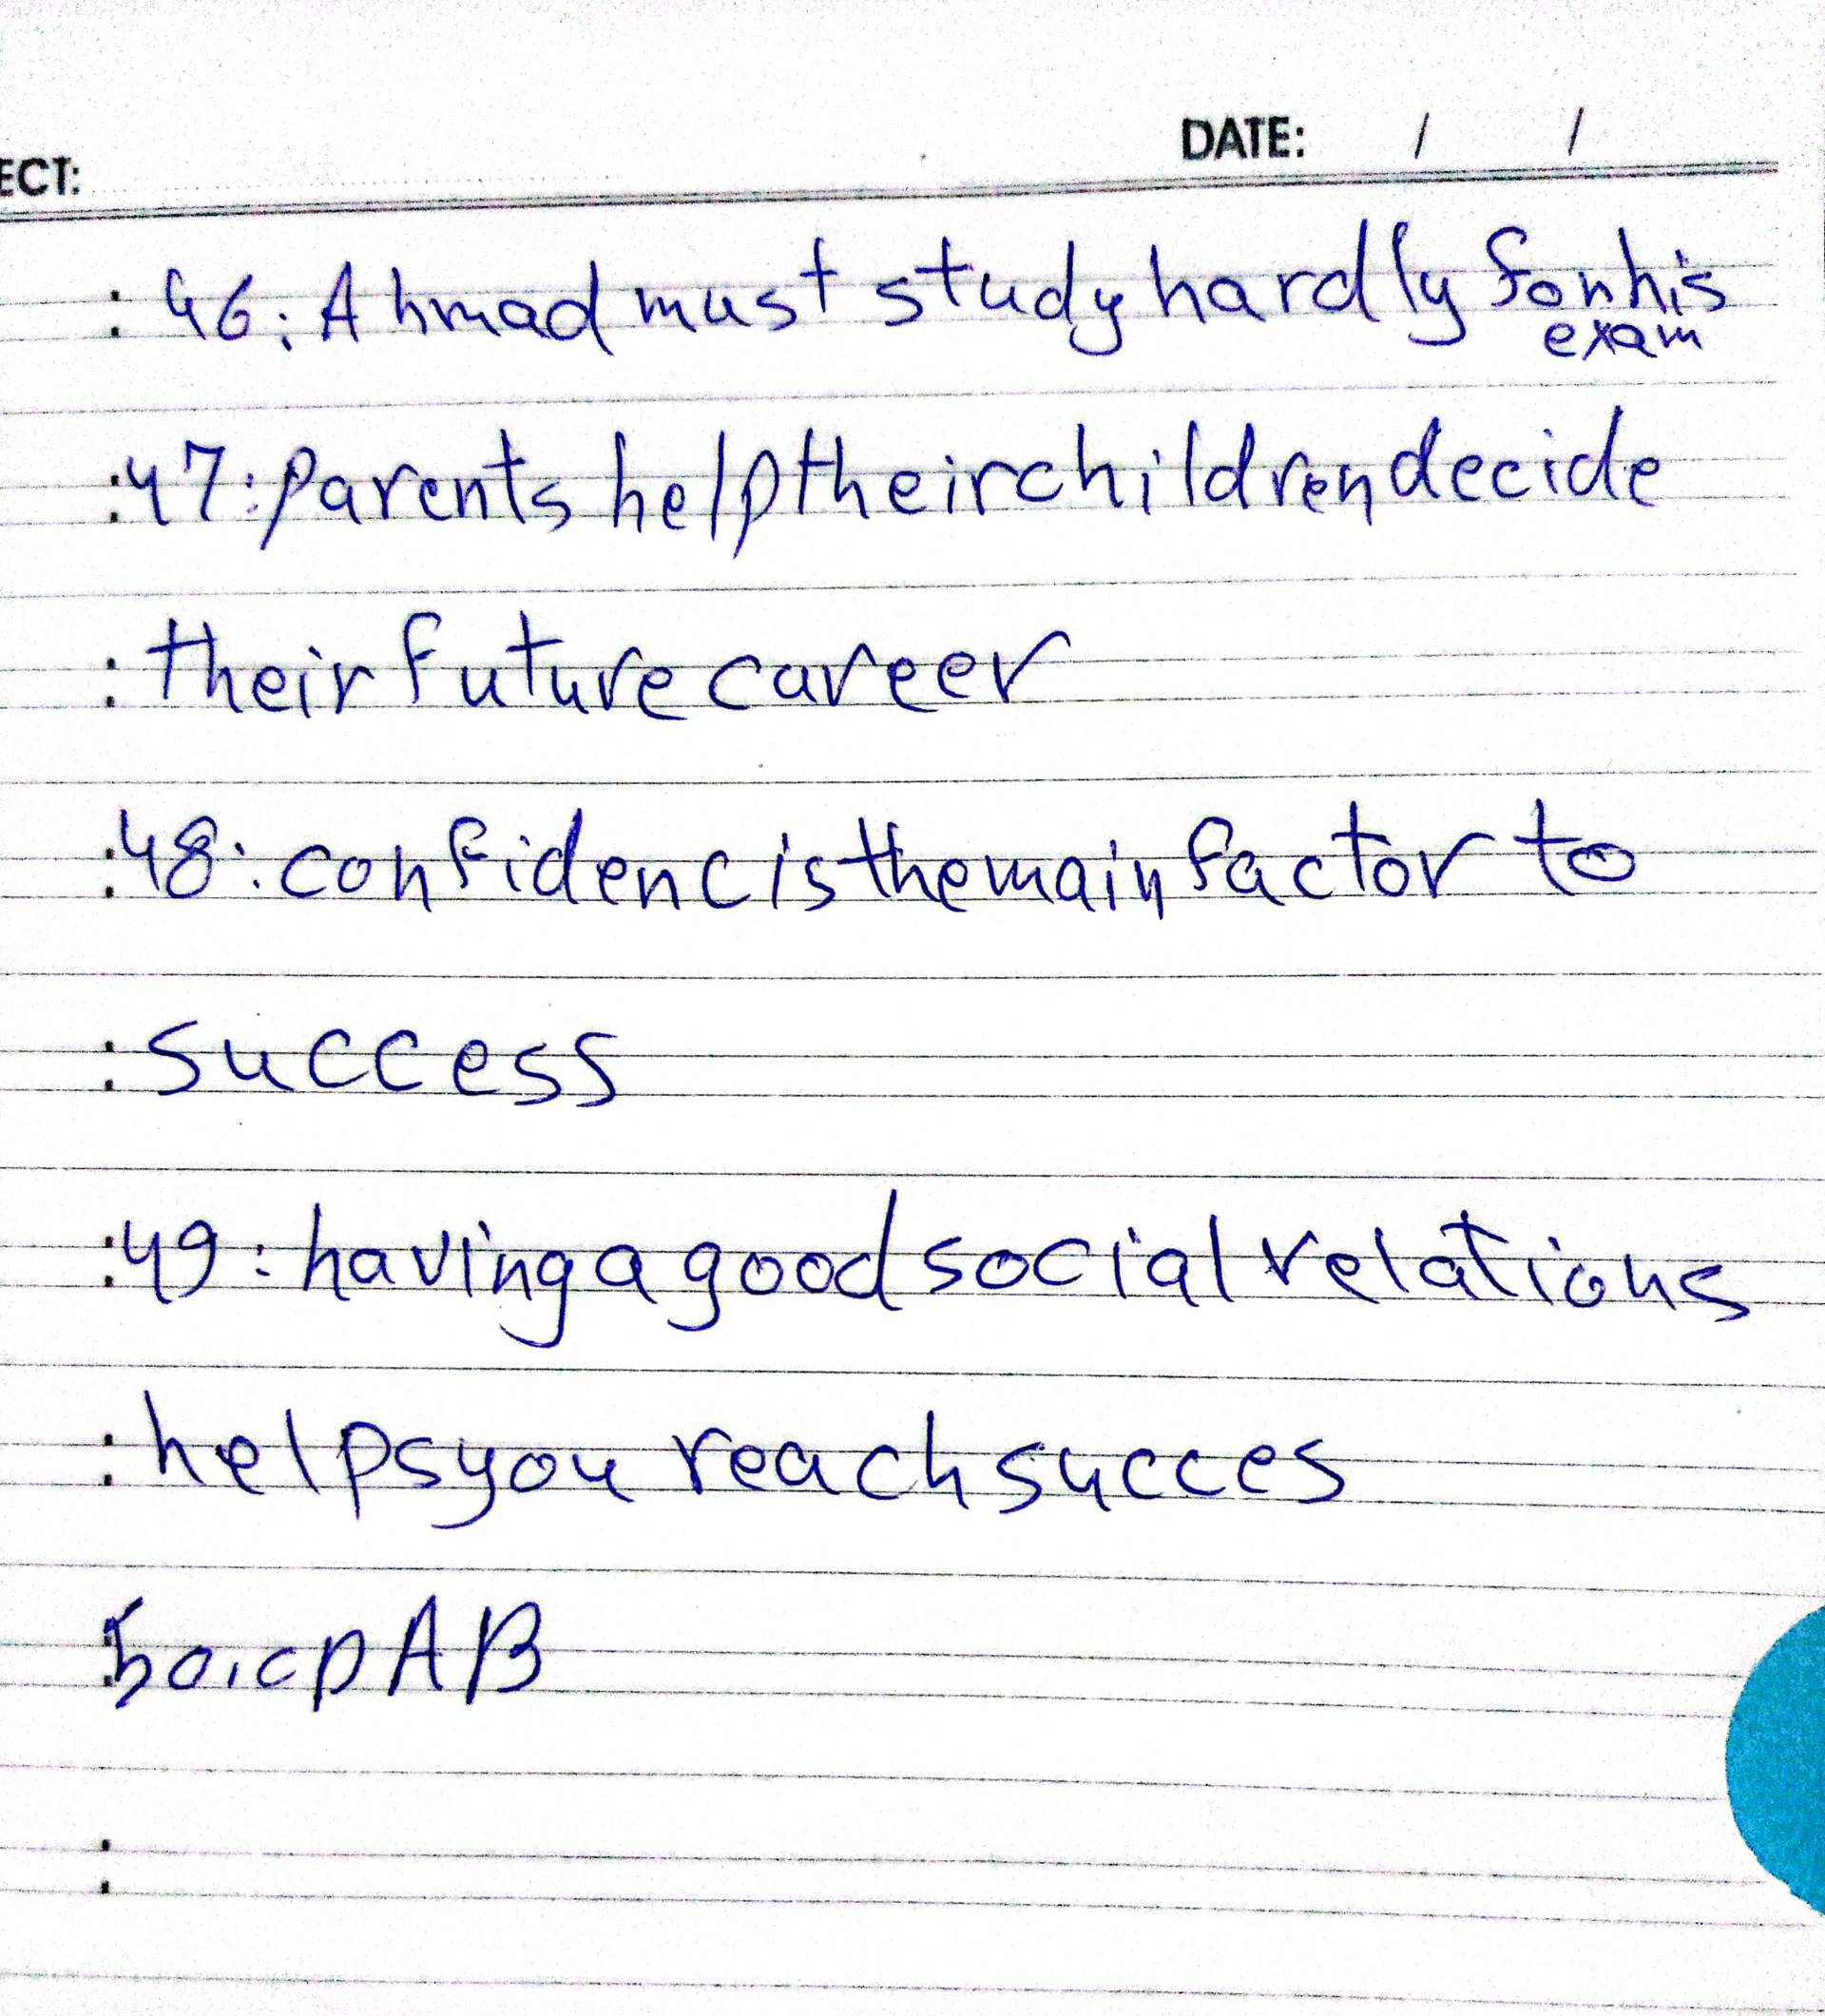 ECT:
DATE: / /
: 46: Ahmad must study hardly for his
exam
: 47: parents help their children decide
: their future career
: 48: confidenc is the main factor to
: success
: 49: having a good social relations
: helps you reach succes
: 50. c D A B
: